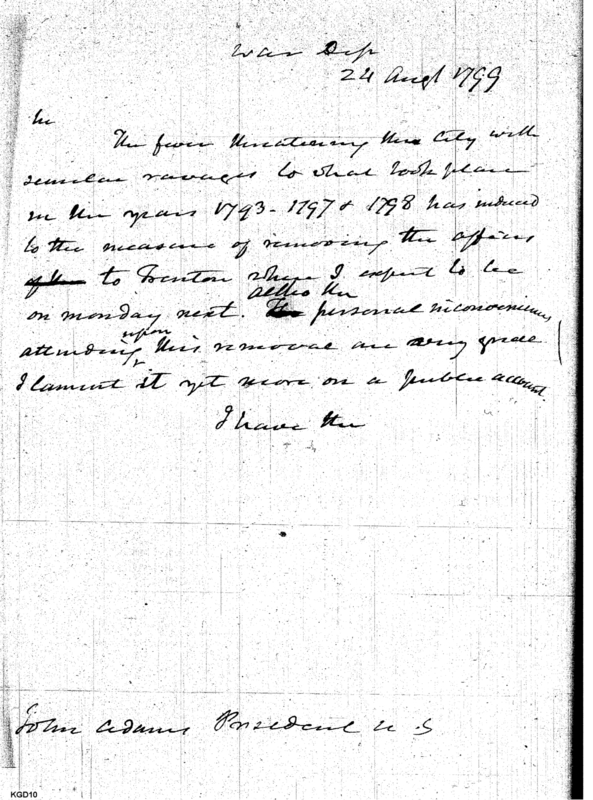 War Dep
24 Augt 1799
Sir
The fever threatening this City with
similar ravages to what took place
in the years 1793 - 1797 & 1798 has induced
to the measure of removing the offices
of the to Trenton where I expect to be
on monday next. altho the The personal inconveniences
attending upon this removal are very great
I lament it yet more on a public account.
I have the
John Adams President U S
KGD10